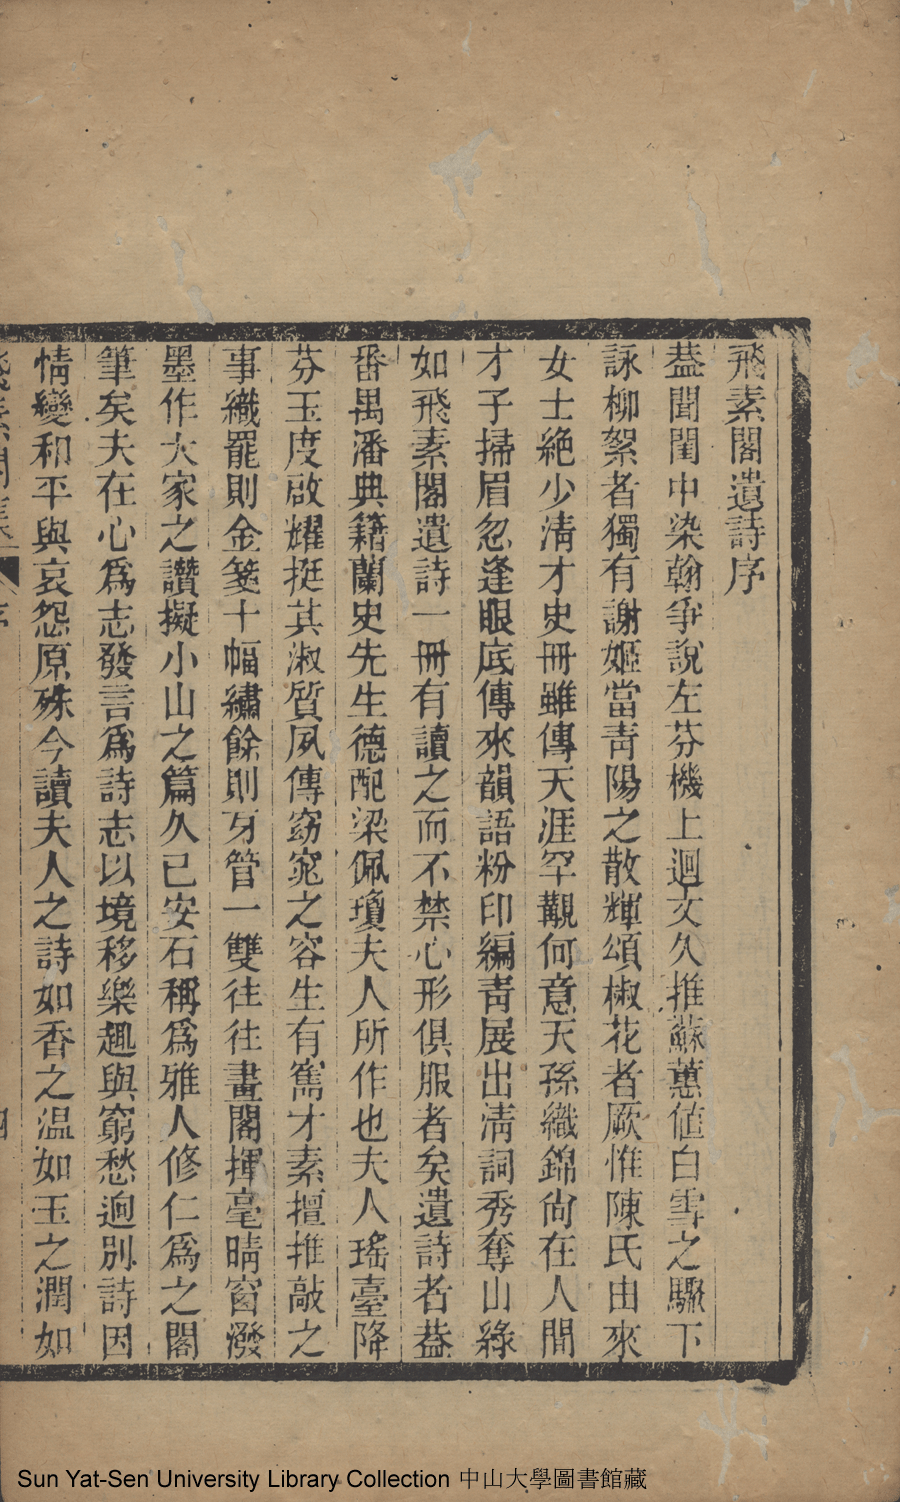 飛素閣遺詩序
葢聞閨中染翰爭說左芬機上迴文久推蘇蕙値白雪之驟下
詠柳絮者獨有謝姬當靑陽之散輝頌椒花者厥惟陳氏由來
女士絶少淸才史冊雖傳天涯罕覯何意天孫織錦尙在人間
才子掃眉忽逢眼底傳來韻語粉印編靑展出淸詞秀奪山綠
如飛素閣遺詩一冊有讀之而不禁心形俱服者矣遺詩者葢
番禺潘典籍蘭史先生德配梁佩瓊夫人所作也夫人瑤臺降
芬玉度啟耀挺其淑質夙傳窈窕之容生有雋才素擅推敲之
事織罷則金箋十幅繡餘則牙管一雙往往畫閣揮毫晴窗潑
墨作大家之讚擬小山之篇久已安石稱爲雅人修仁爲之閣
筆矣夫在心爲志發言爲詩志以境移樂趣與窮愁逈別詩因
情變和平與哀怨原殊今讀夫人之詩如香之温如玉之潤如
飛素閣集
序
四
Sun Yat-Sen University Library Collection 中山大學圖書館藏